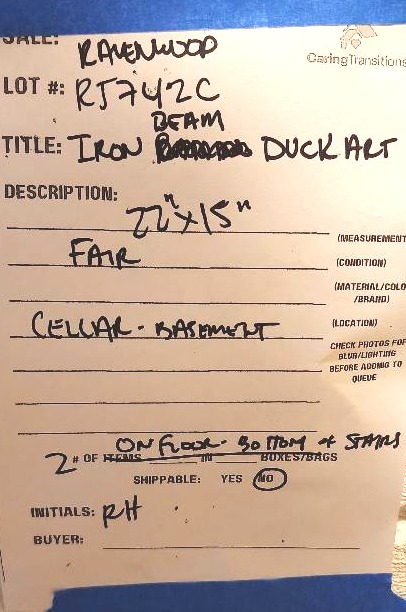 SALE: RAVENWOOD
CaringTransitions
LOT #: RJ742C
BEAM
TITLE: IRON DUCK ART
DESCRIPTION:
22" X 15"
(MEASUREMENT
FAIR
(CONDITION)
(MATERIAL/COLO
/BRAND)
CELLAR - BASEMENT
(LOCATION)
CHECK PHOTOS FOR
BLUR/LIGHTING
BEFORE ADDING TO
QUEUE
ON FLOOR - BOTTOM of STAIRS
2 # OF ITEMS IN BOXES/BAGS
SHIPPABLE: YES NO
INITIALS: RH
BUYER: